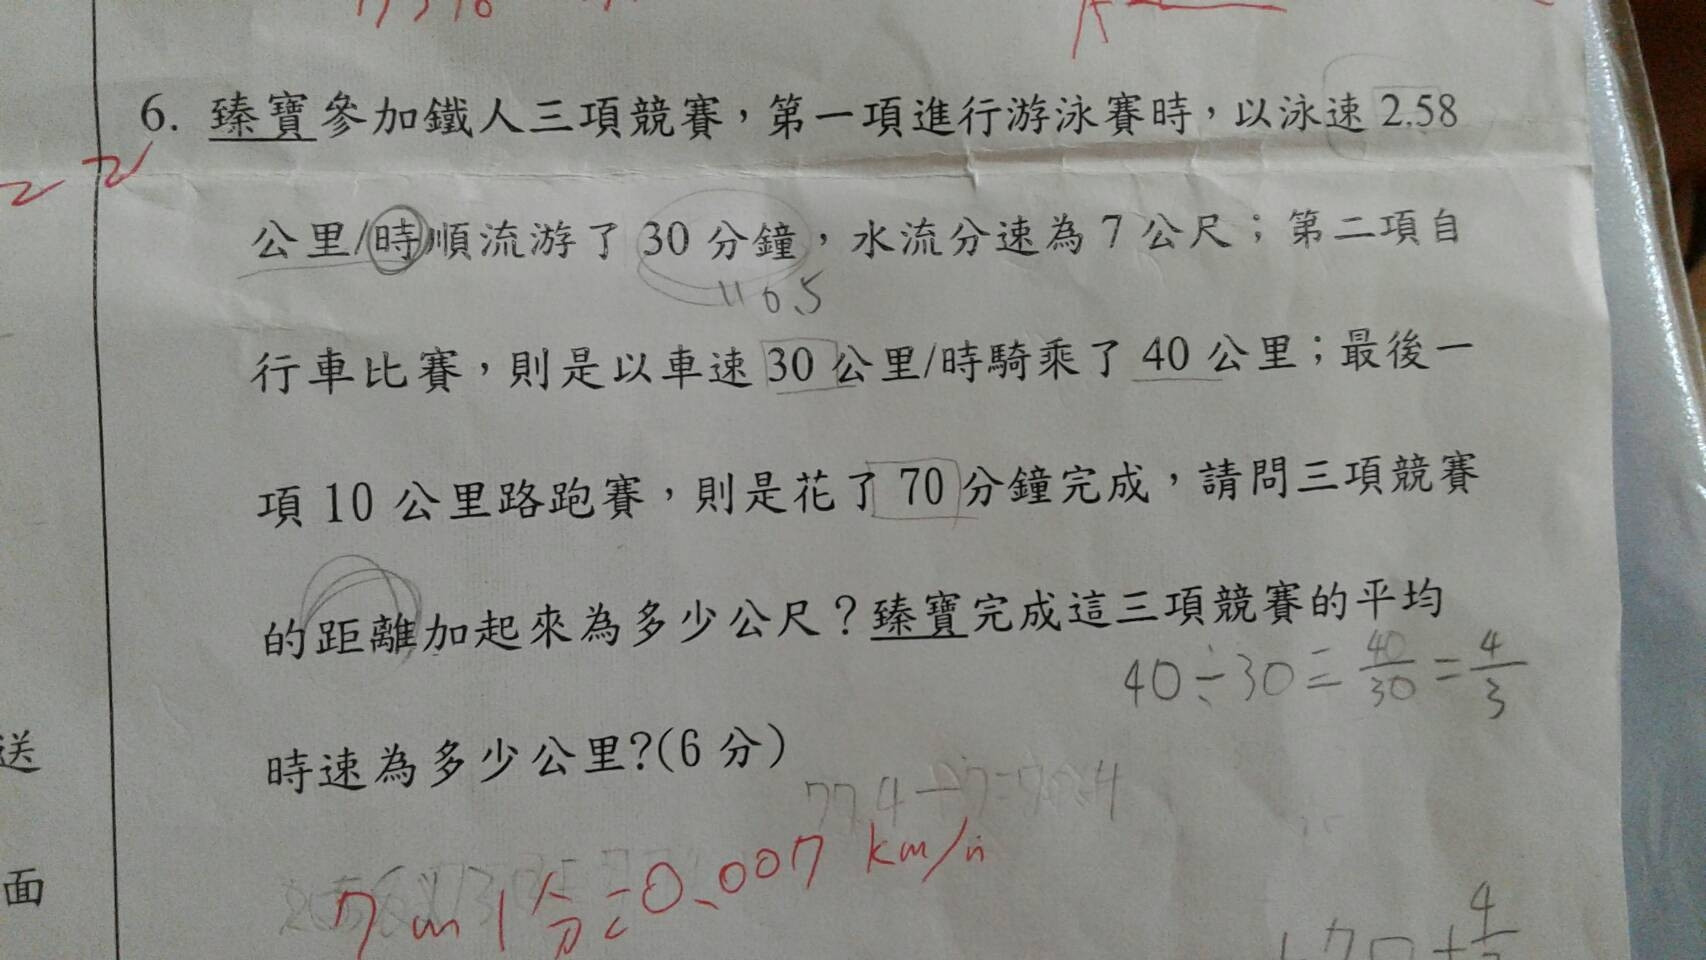 6. 臻寶參加鐵人三項競賽，第一項進行游泳賽時，以泳速 2.58
公里/時順流游了 30 分鐘，水流分速為 7 公尺；第二項自
行車比賽，則是以車速 30 公里/時騎乘了 40 公里；最後一
項 10 公里路跑賽，則是花了 70 分鐘完成，請問三項競賽
的距離加起來為多少公尺？臻寶完成這三項競賽的平均
40÷30=40/30=4/3
時速為多少公里?(6 分)
7 m 1分=0.007 km/
送
面